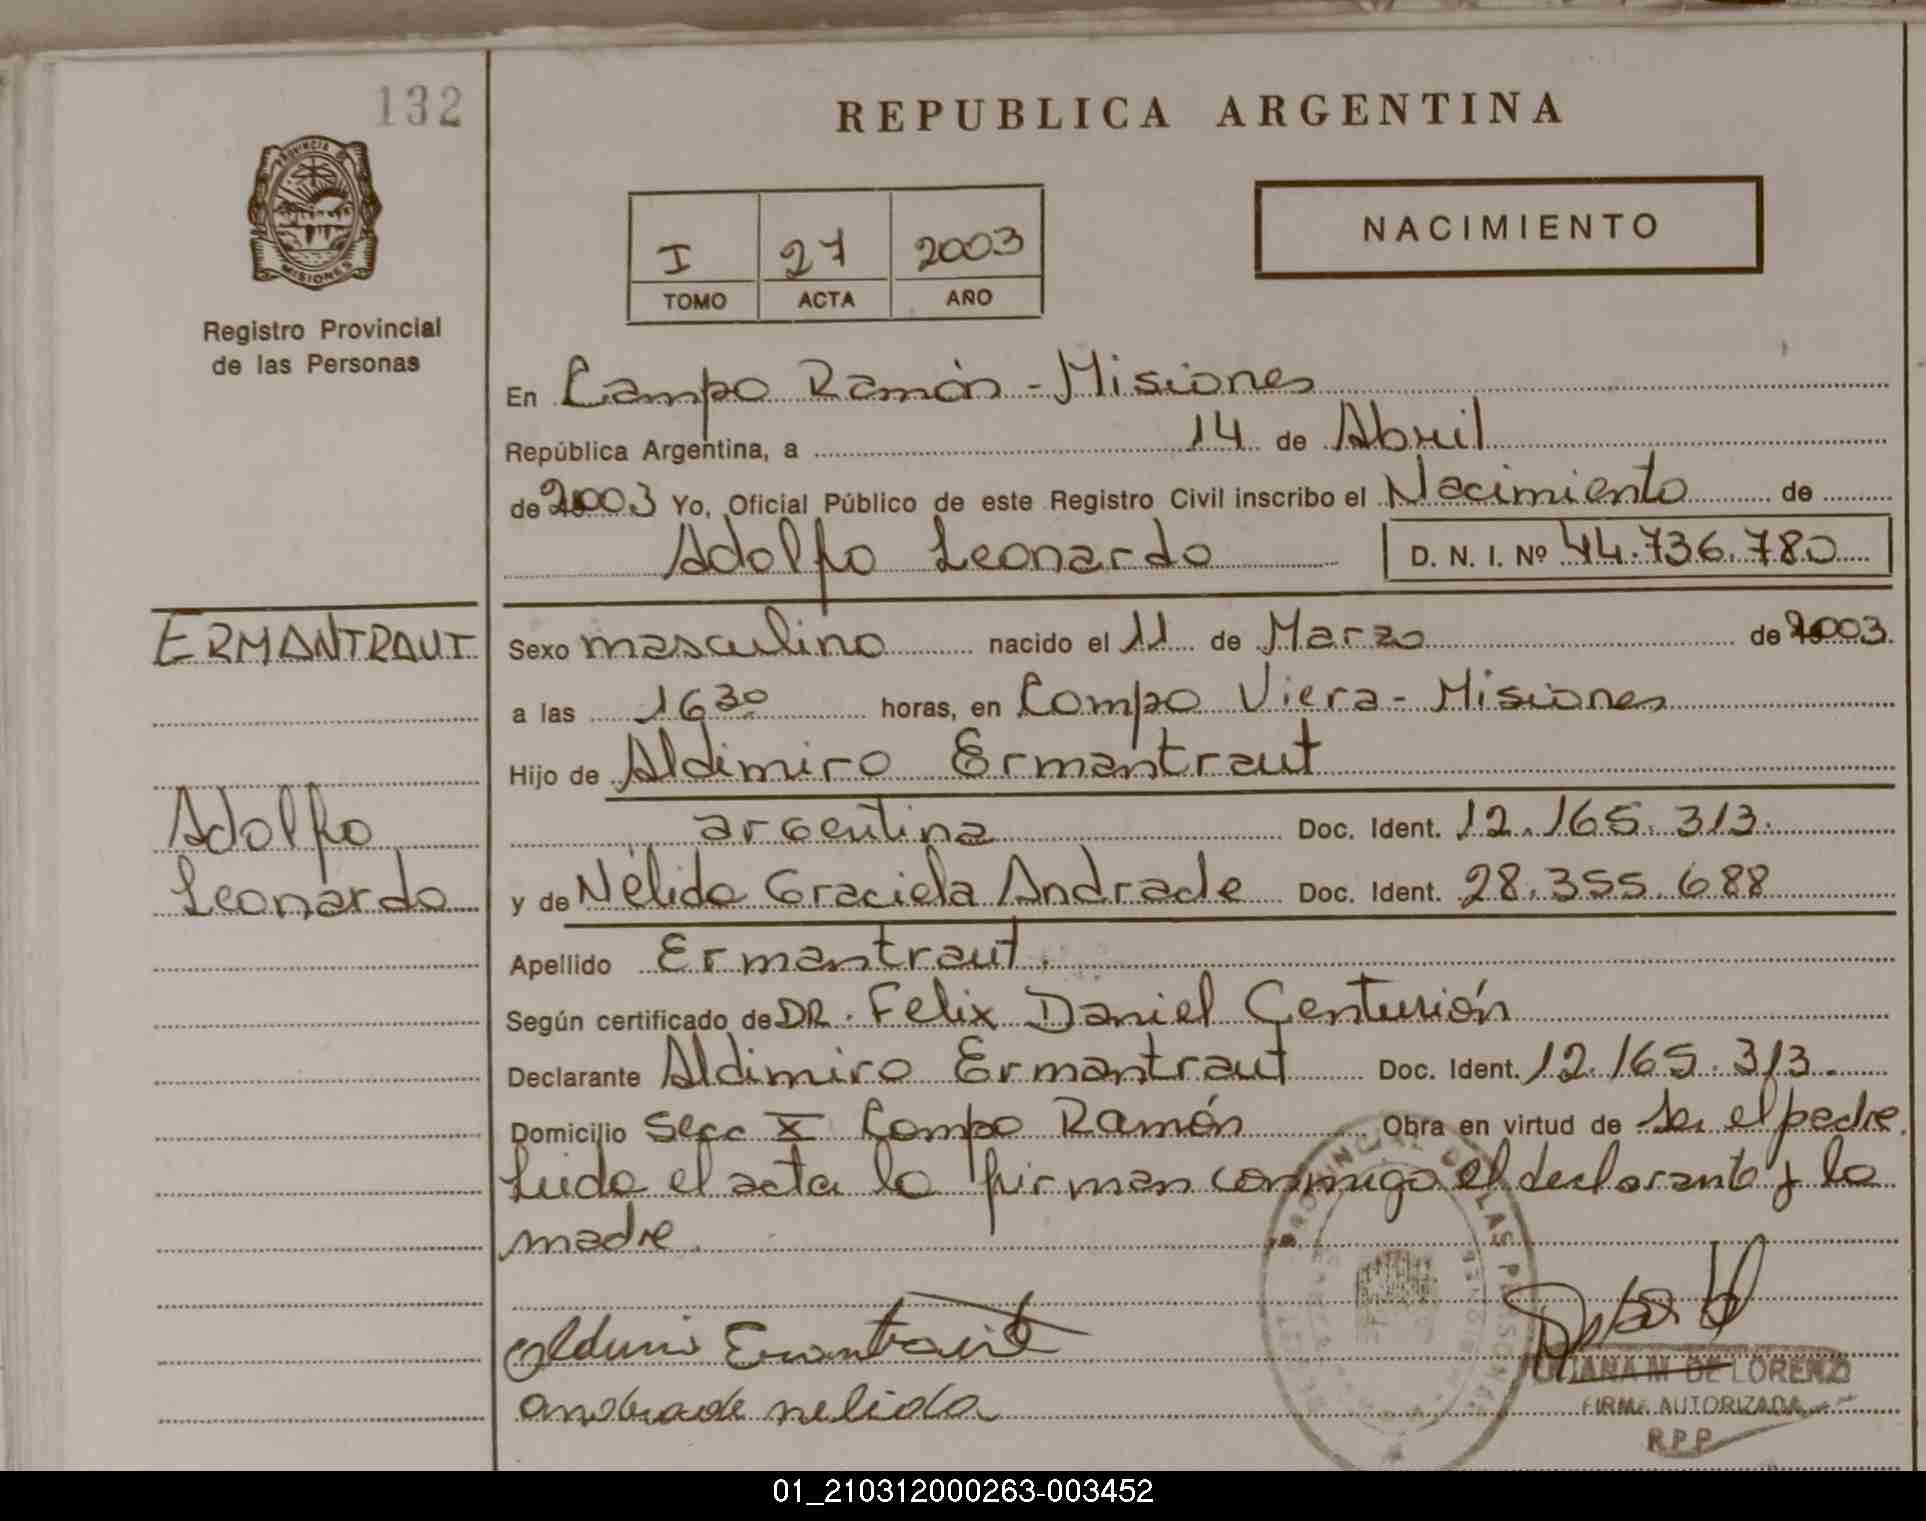 132
REPUBLICA ARGENTINA
PROVINCIA DE
MISIONES
Registro Provincial
de las Personas
I 27 2003
TOMO ACTA AÑO
NACIMIENTO
En Campo Ramón - Misiones
República Argentina, a 14 de Abril
de 2003 Yo, Oficial Público de este Registro Civil inscribo el Nacimiento de
Adolfo Leonardo D. N. I. Nº 44.736.780
ERMANTRAUT
Adolfo
Leonardo
Sexo masculino nacido el 11 de Marzo de 2003.
a las 16 30 horas, en Campo Viera - Misiones
Hijo de Aldimiro Ermantraut
argentina Doc. Ident. 12.165.313.
y de Nélida Graciela Andrade Doc. Ident. 28.355.688
Apellido Ermantraut.
Según certificado de DR. Felix Daniel Centurión
Declarante Aldimiro Ermantraut Doc. Ident. 12.165.313.
Domicilio Secc X Campo Ramón Obra en virtud de ser el padre.
Leida el acta la firman conmigo el declarante y la
madre.
PROVINCIAL DE LAS PERSONAS
Ermantraut
andrade nelida
LILIANA M. DE LORENZO
FIRMA AUTORIZADA
R.P.P.
01_210312000263-003452